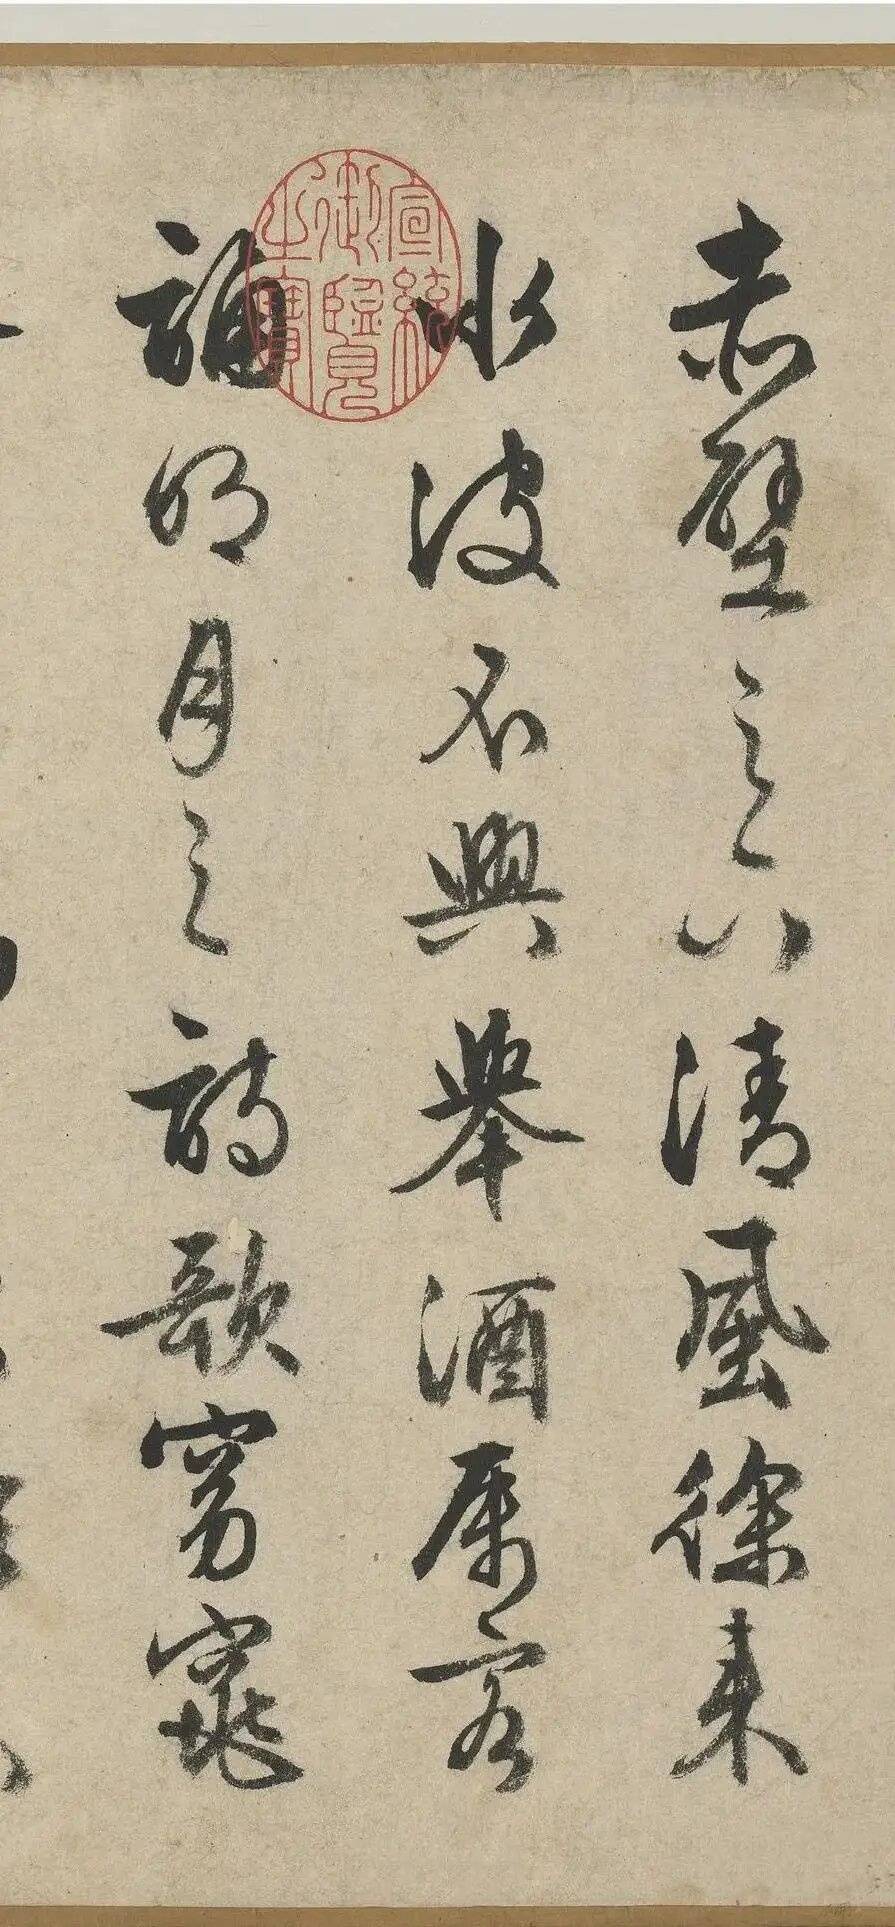 赤壁之下清風徐来
水波不興舉酒属客
誦明月之詩歌窈窕
宣統御覽之寳